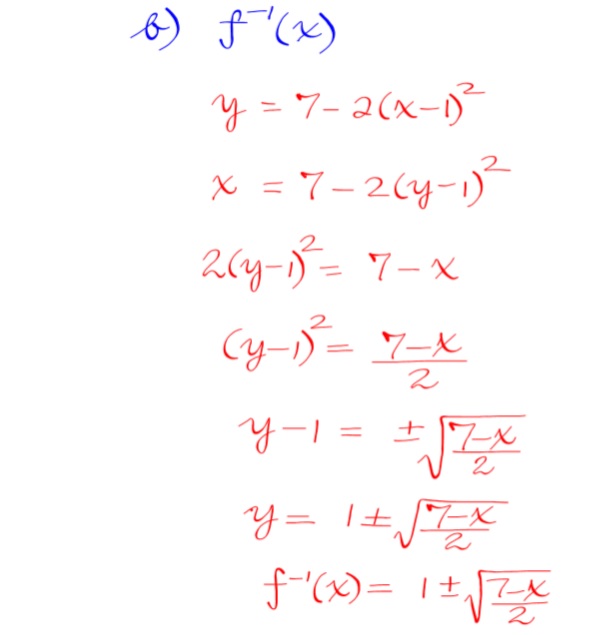 b) f⁻¹(x)
y = 7 - 2(x-1)²
x = 7 - 2(y-1)²
2(y-1)² = 7 - x
(y-1)² = (7-x)/2
y - 1 = ±√((7-x)/2)
y = 1 ± √((7-x)/2)
f⁻¹(x) = 1 ± √((7-x)/2)